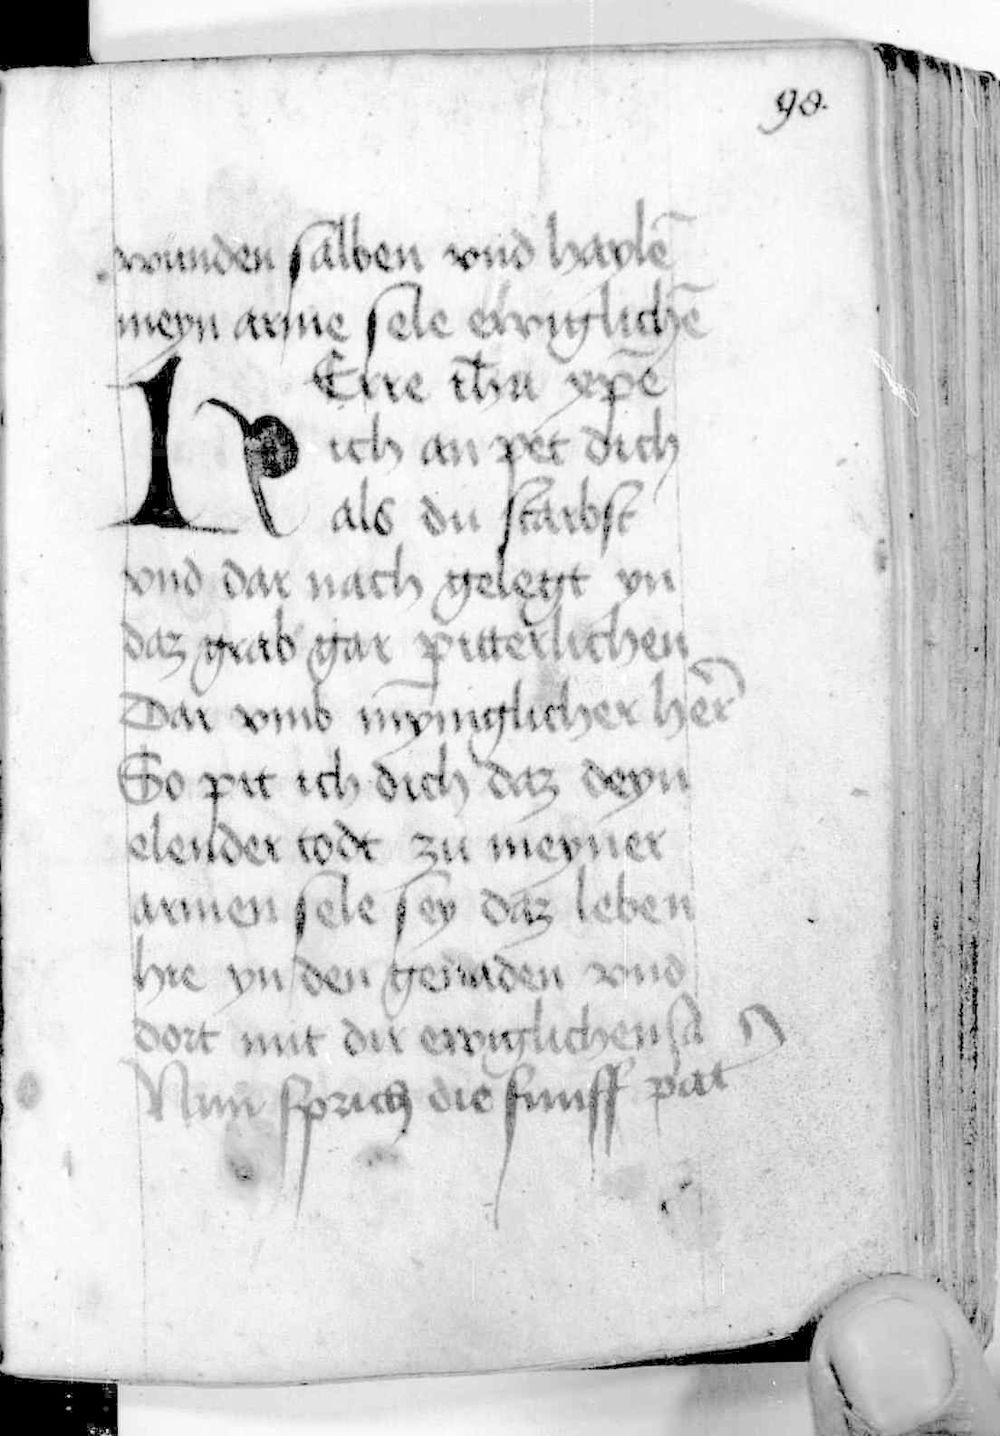 98.
wunden salben vnd haylē
meyn arme sele ewiglichē
HErre ih̄u xp̄e
ich an pet dich
als du starbst
vnd dar nach gelegt yn
daz grab gar pitterlichen
Dar vmb mȳniglicher her̄
So pit ich dich daz deyn
elender todt zu meyner
armen sele sey daz leben
hie yn den genaden vnd
dort mit dir ewiglichen
Nun sprich die funff pat